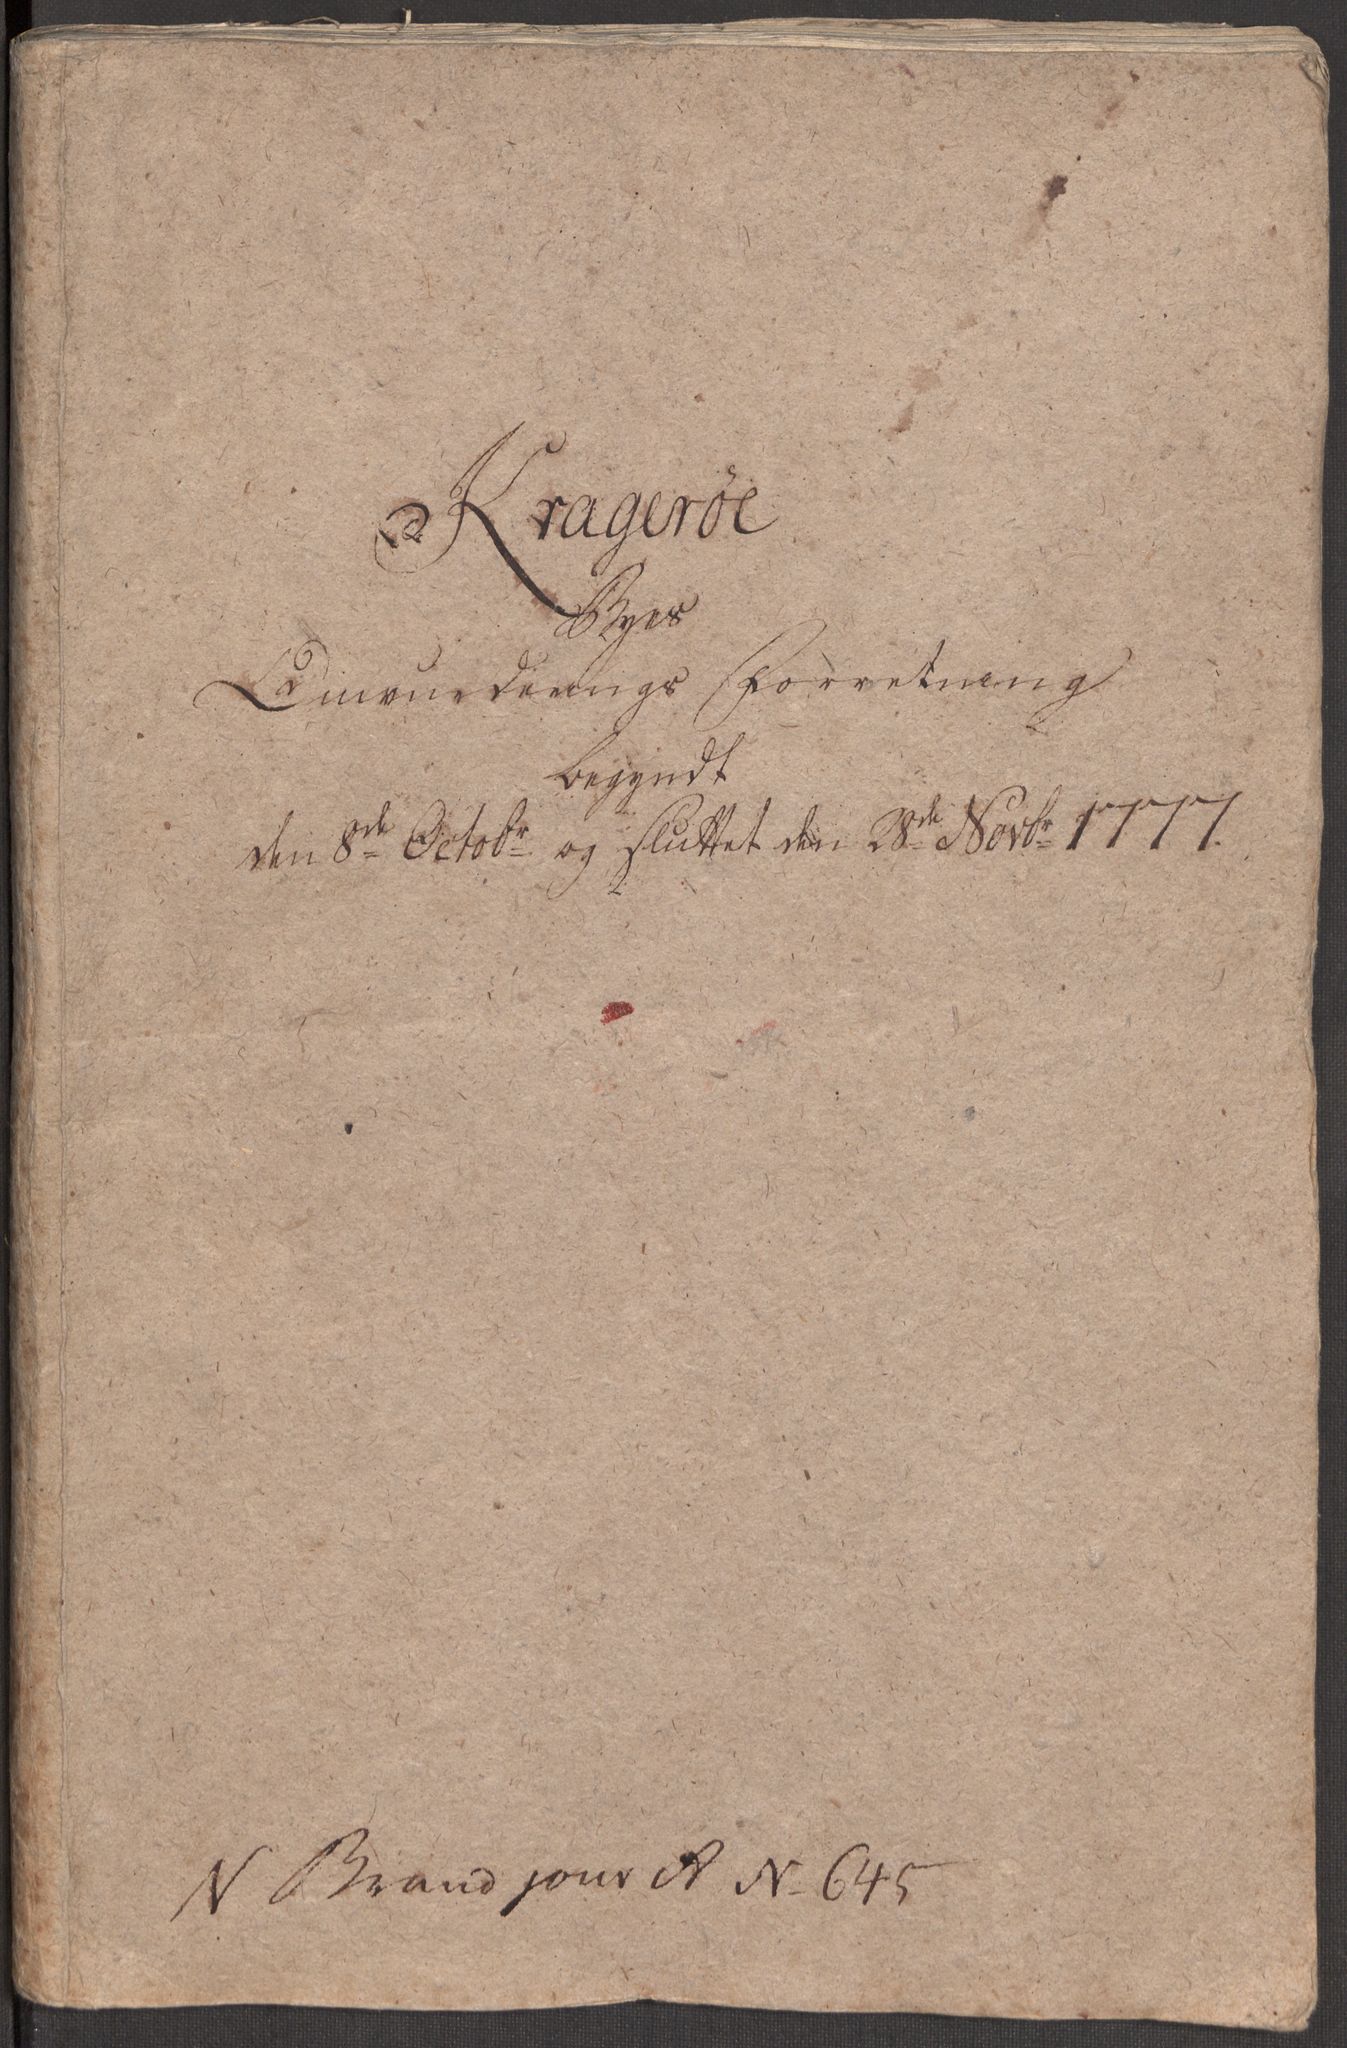 Kragerøe
Byes
Omvurderings Forretning
begyndt
den 8de Octobr og sluttet den 28de Novbr 1777.
N Brand jour A No 645